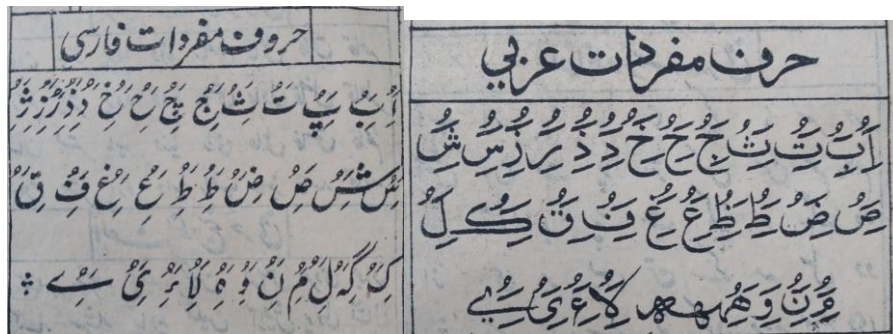 حرف مفردات عربي
اَِبَُ تَُِ ثَُِ جَُِ حَُِ خَُِ دَُِ ذَُِ رَُِ زَُِ سَُِ شَُِ
صَُِ ضَُِ طَُِ ظَُِ عَُِ غَُِ فَُِ قَُِ كَُِ لَُِ
مَُِ نَُِ وَُِ هَُِ لَا ءَُِ يَُِ ے
حروف مفردات فارسی
اَِ بَُِ پَُِ تَُِ ثَُِ جَُِ چَُِ حَُِ خَُِ دَُِ ذَُِ رَُِ زَُِ ژَُِ
سَُِ شَُِ صَُِ ضَُِ طَُِ ظَُِ عَُِ غَُِ فَُِ قَُِ
کَُِ گَُِ لَُِ مَُِ نَُِ وَُِ هَُِ لَا ءَُِ یَُِ ے